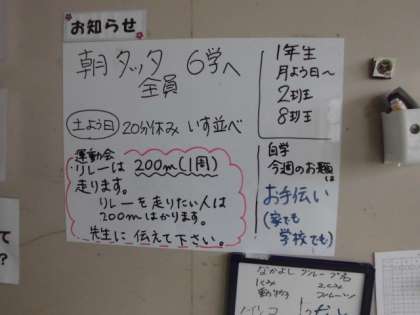 お知らせ
朝タッタ 6学へ
全員
土よう日 20分休み いす並べ
運動会
リレーは 200m(1周)
走ります。
リレーを走りたい人は
200mはかります。
先生に伝えて下さい。
1年生
月よう日〜
2班
8班
自学
今週のお題
は
お手伝い
(家でも
学校でも)
て
?
なかよしグループ名